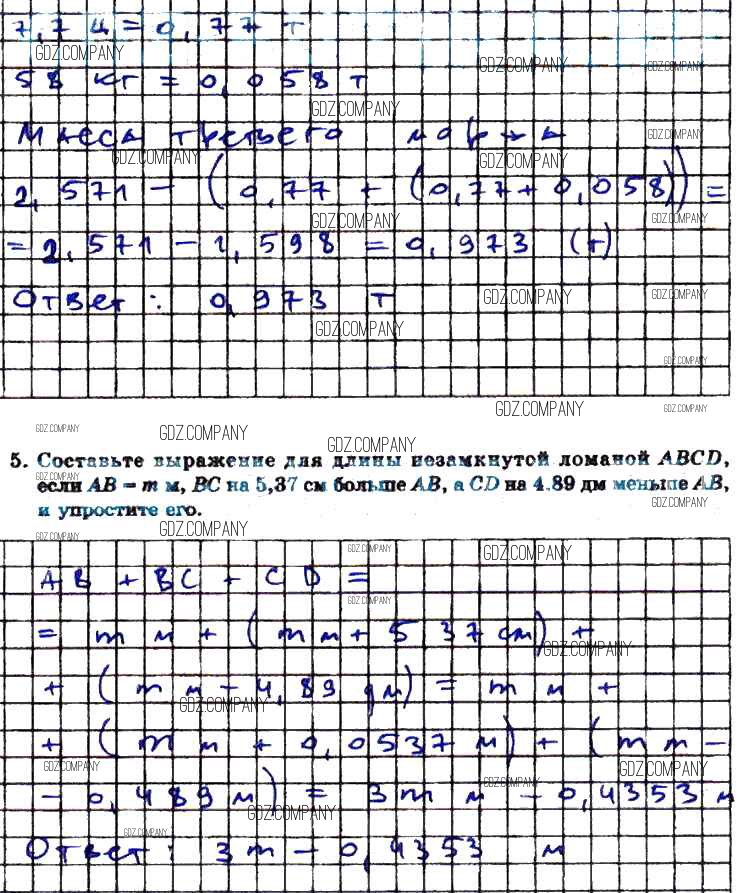 7,7 ц = 0,77 т
58 кг = 0,058 т
Масса третьего моржа
2,571 - (0,77 + (0,77 + 0,058)) =
= 2,571 - 1,598 = 0,973 (т)
Ответ: 0,973 т
5. Составьте выражение для длины незамкнутой ломаной ABCD,
если AB = m м, BC на 5,37 см больше AB, а CD на 4,89 дм меньше AB,
и упростите его.
AB + BC + CD =
= m м + (m м + 5 37 см) +
+ (m м - 4,89 дм) = m м +
+ (m м + 0,0537 м) + (m м -
- 0,489 м) = 3m м - 0,4353 м
Ответ: 3m - 0,4353 м
GDZ.COMPANY